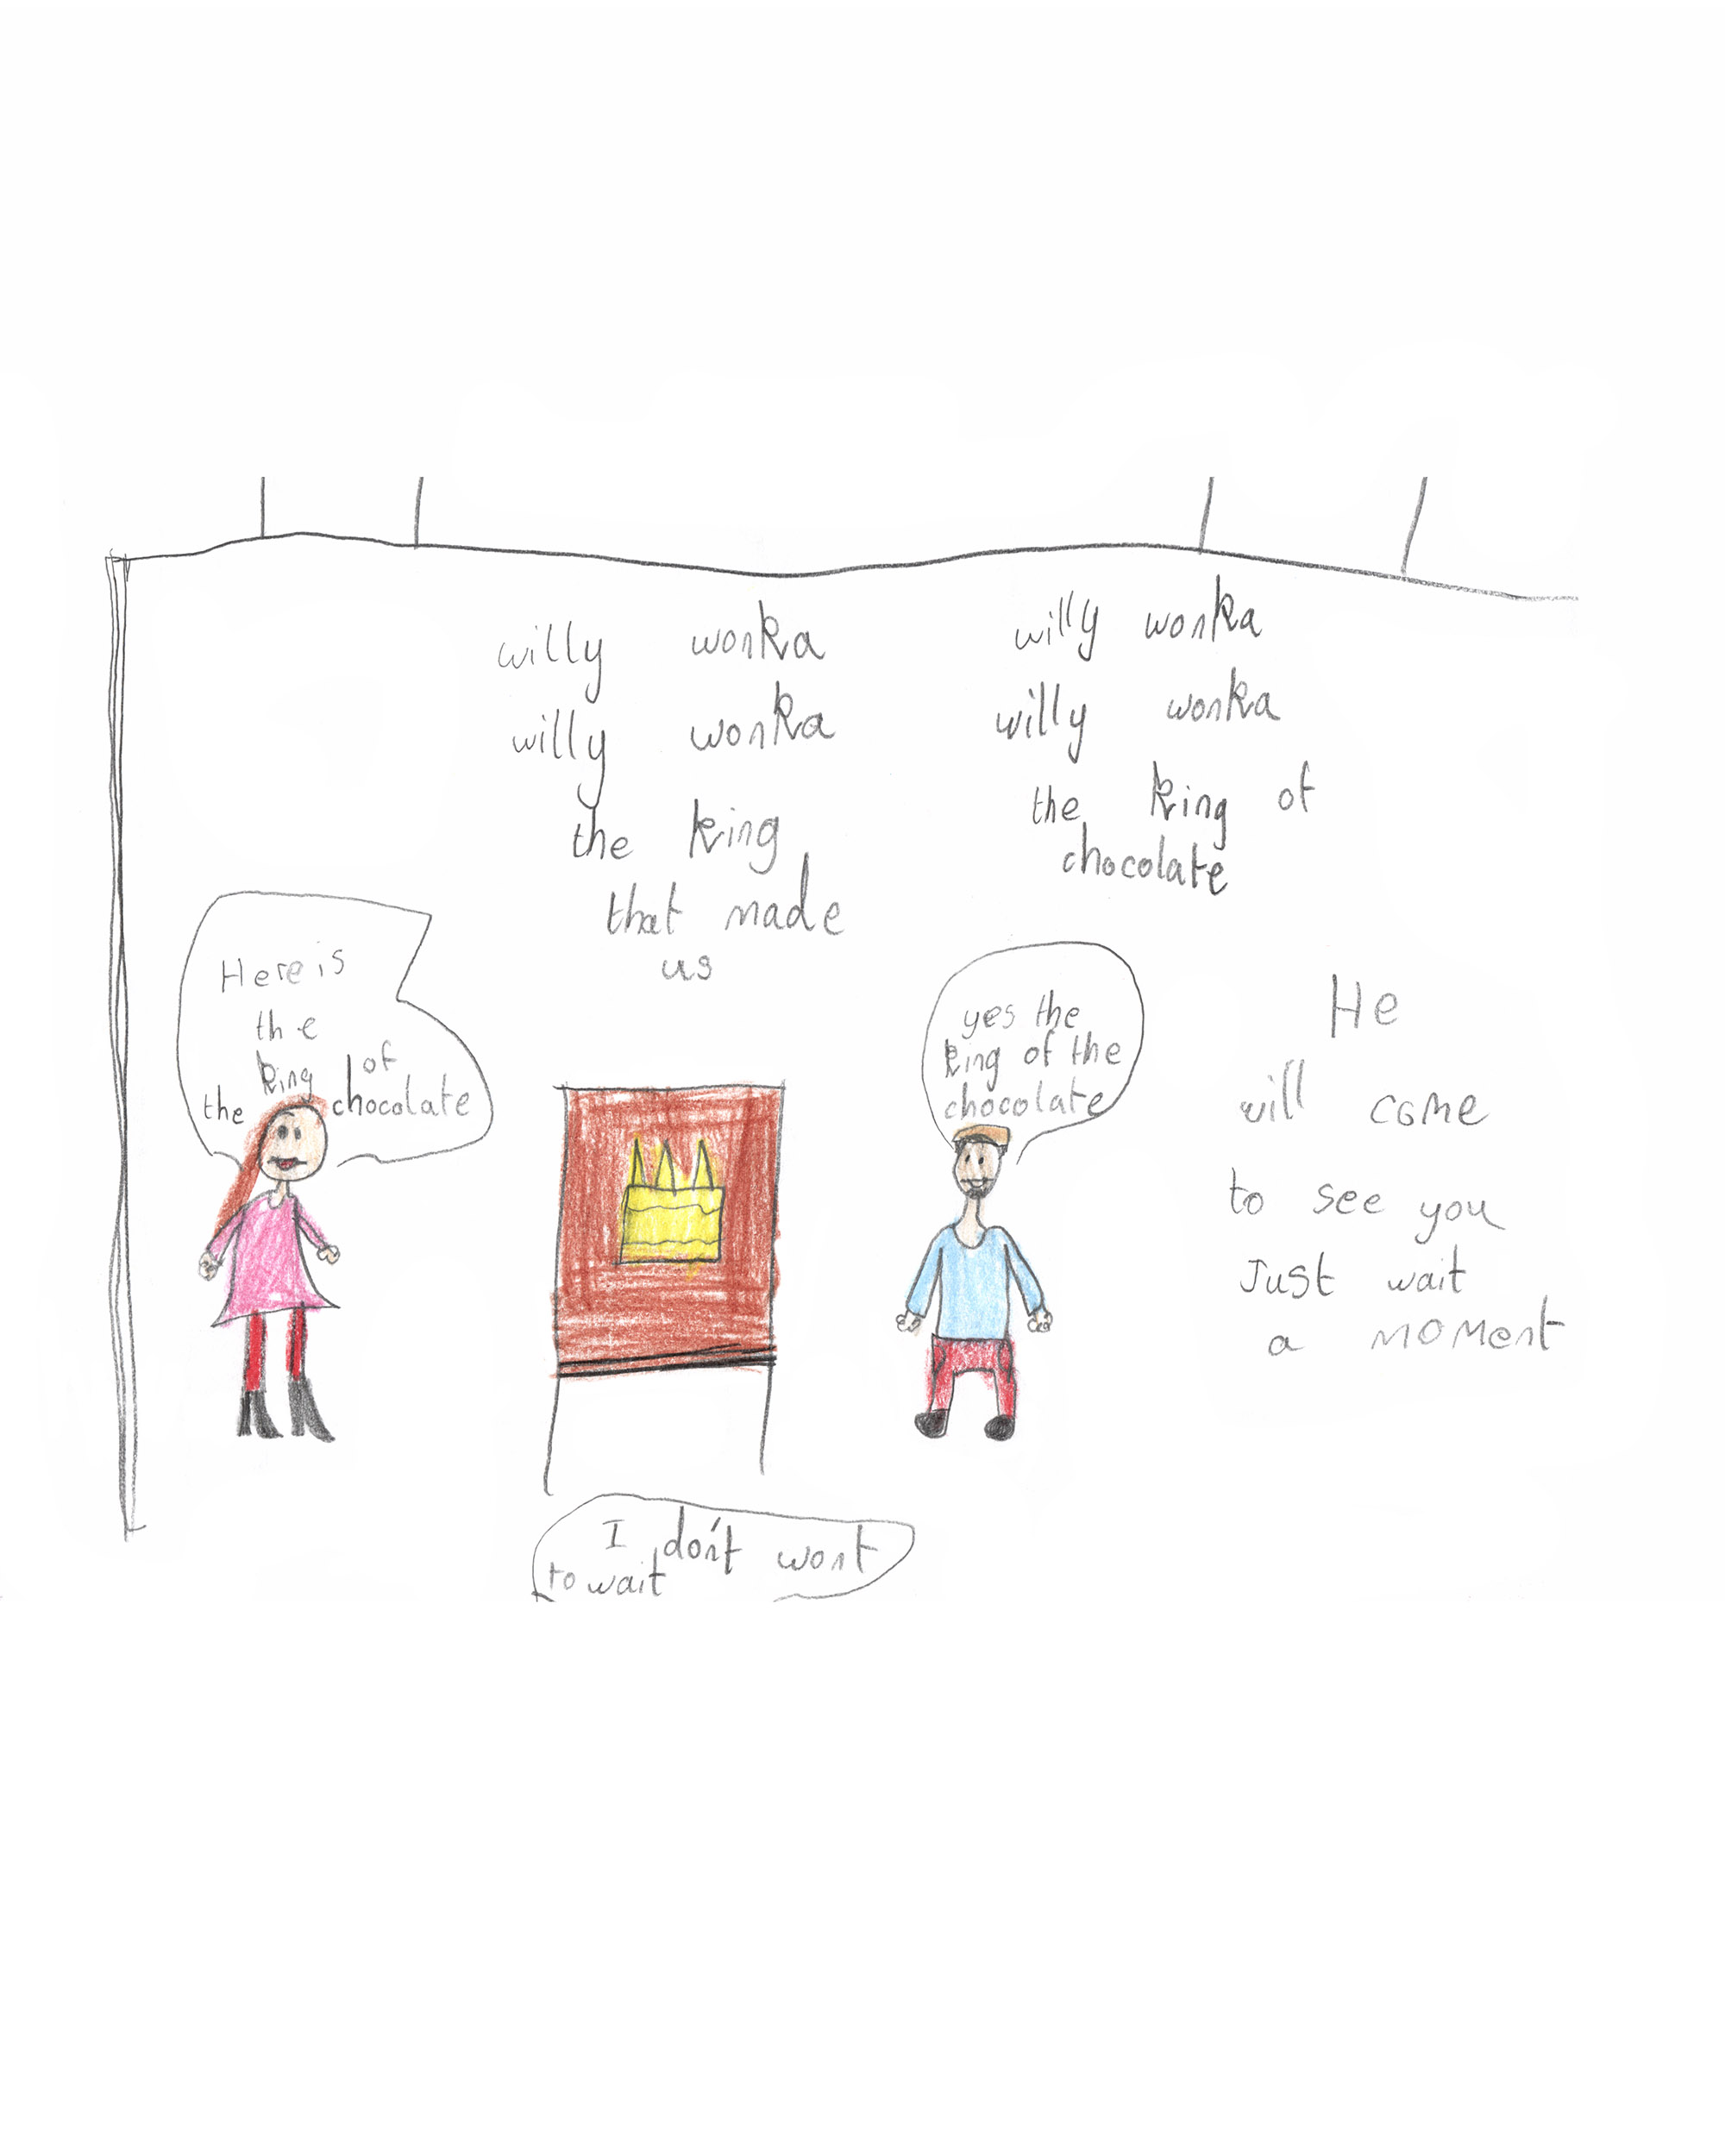 willy wonka
willy wonka
the king
that made
us
willy wonka
willy wonka
the king of
chocolate
Here is
the
king of
the chocolate
yes the
king of the
chocolate
He
will come
to see you
Just wait
a moment
I don't wont
to wait